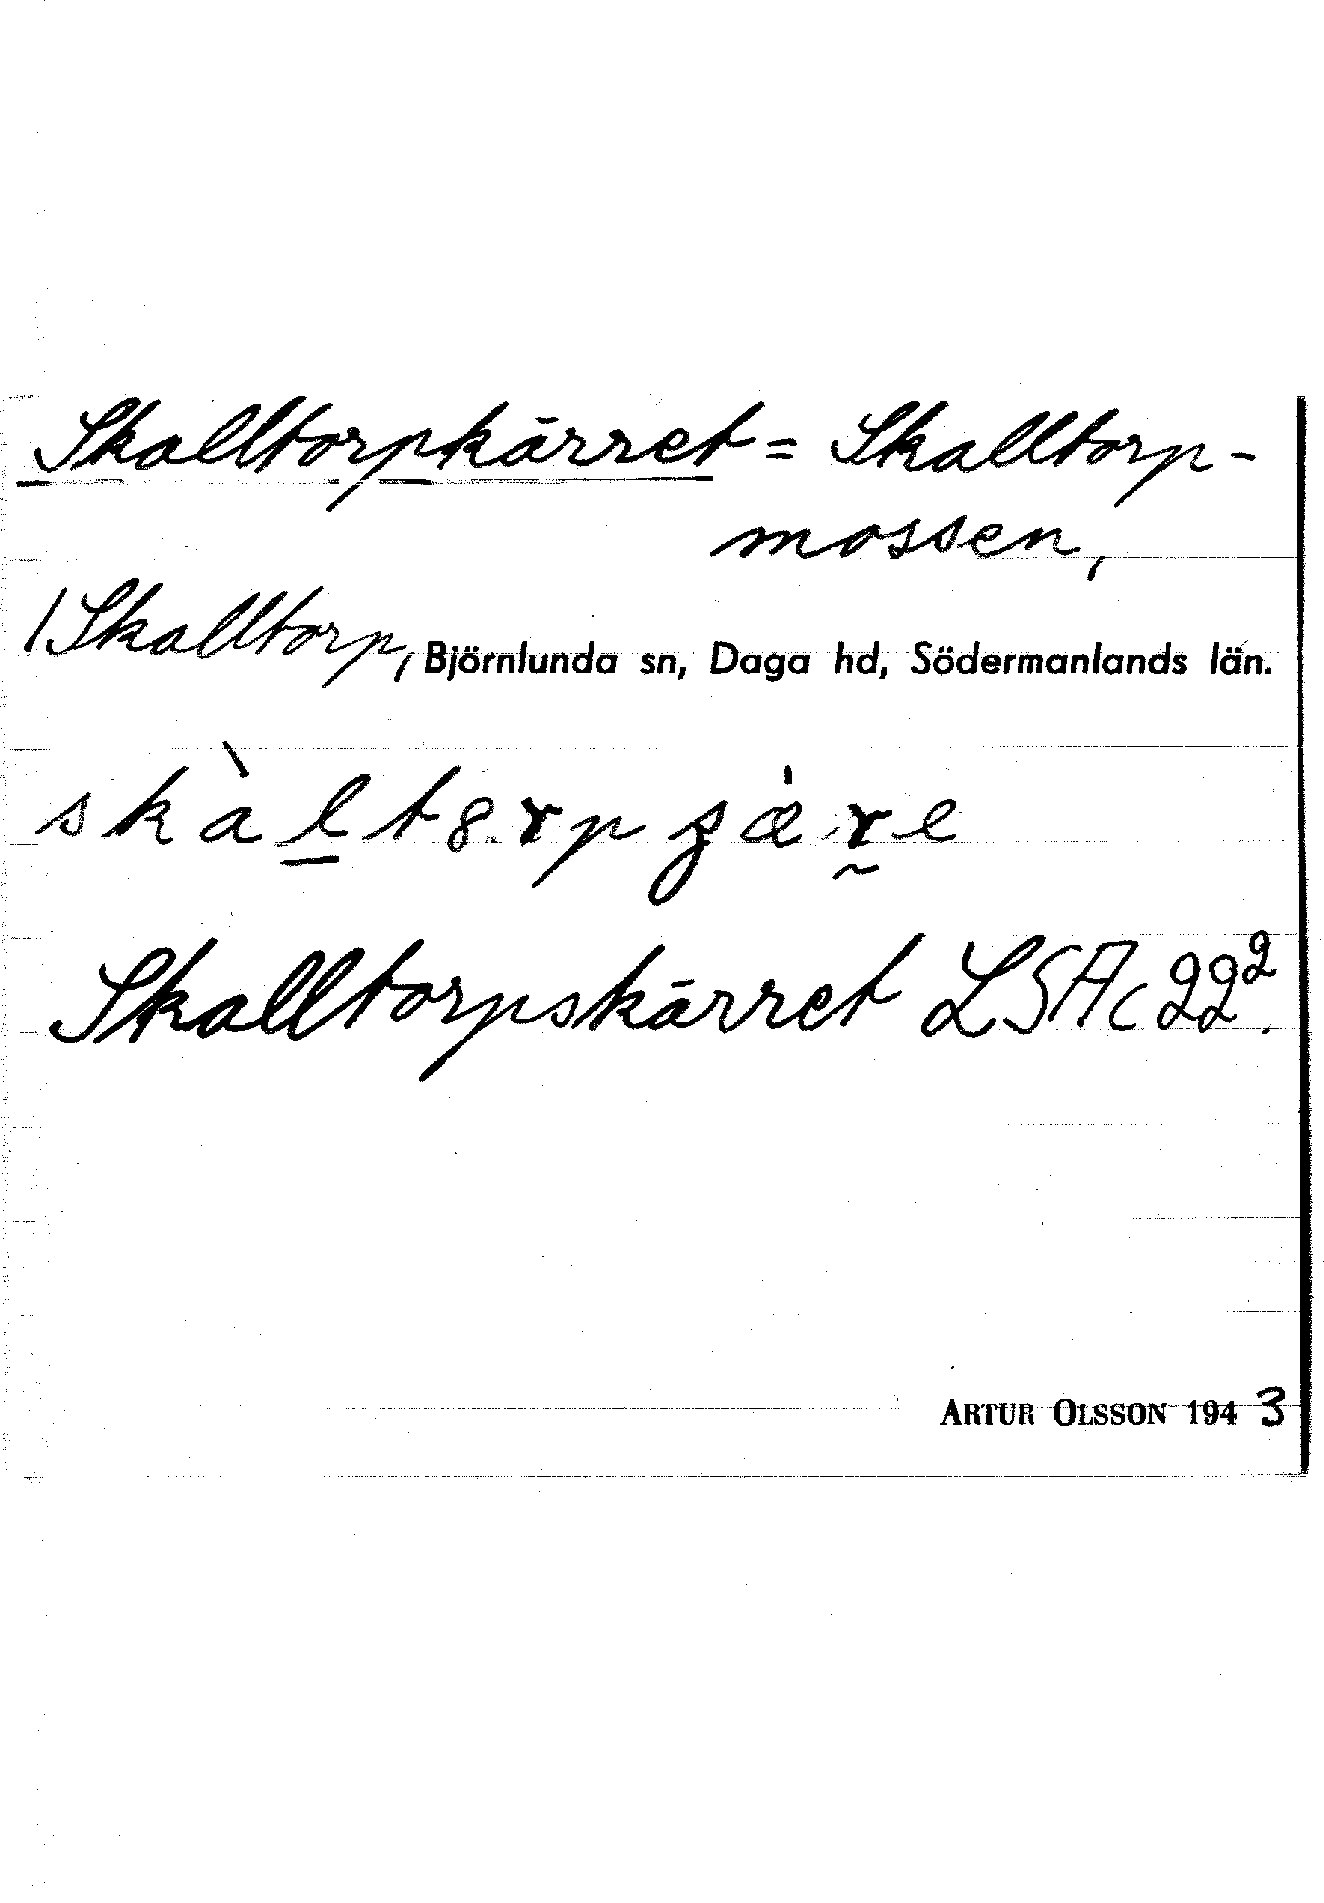 Skalltorpkärret = Skalltorp-
mossen,
/Skalltorp, Björnlunda sn, Daga hd, Södermanlands län.
skàltɤrpʓæ̍re
Skalltorpskärret LSA C 22².
ARTUR OLSSON 1943